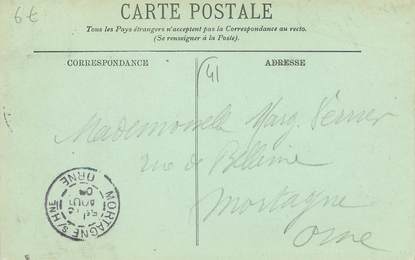 6€
CARTE POSTALE
Tous les Pays étrangers n'acceptent pas la Correspondance au recto.
(Se renseigner à la Poste).
CORRESPONDANCE
ADRESSE
41
Mademoiselle Marg.
rue de Bellême
Mortagne
Orne
MORTAGNE S/HNE
ORNE
AOUT